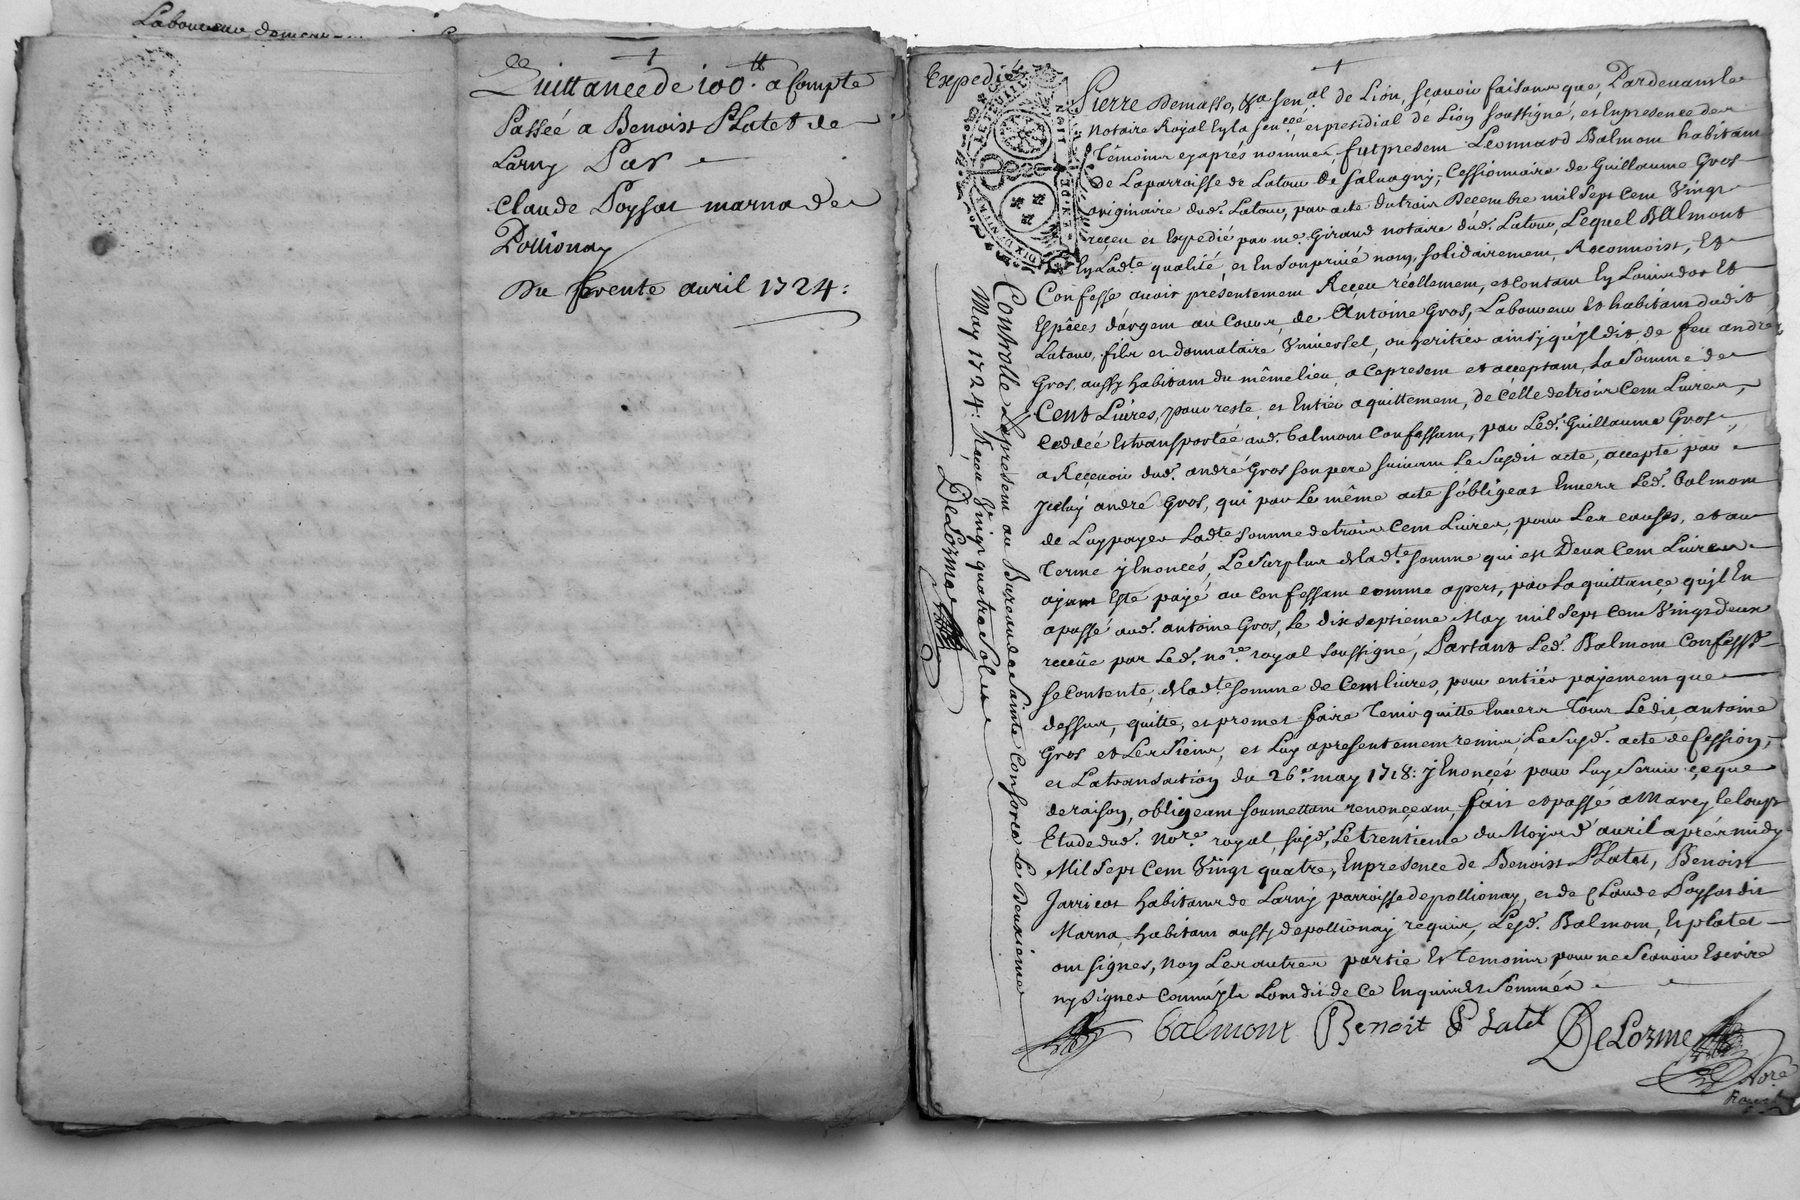 Laboureur demeur
Quittance de 100 ₶. a Compte
Passée a Benoist Platet de
Larny Par
Claude Poysat marna de
Pollionay
Du trente avril 1724:
Expedié
Pierre Demasso, &a. Sen.al de Lion, sçavoir faisons que, Pardevant le
Notaire Royal En la Sen.cée, et presidial de Lion soussigné, et En presence des
Témoins cy aprés nommés, fut present Leonnard Balmont habitant
de La parroisse de Latour de Salvagny, Cessionnaire de Guillaume Gros
originaire dud. Latour, par acte du trois Decembre mil sept cent Vingt
reçeu et Expedié par me. Giraud notaire dud. Latour, Lequel Balmont
En Lad.te qualité, et En son privé nom, solidairement, Reconnoist, Et
Confesse avoir presentement Reçeu réellement, et contant En Louis d'or Et
Espêces d'argent au Cours, de Antoine Gros, Laboureur Et habitant dudit
Latour, fils et donnataire Vniversel, ou heritier ainsy qu'jl dit, de feu andré
Gros, aussy habitant du même lieu, a ce present et acceptant, La Somme de
Cent Livres, pour reste, et Entier aquittement, de Celle de trois Cent Livres,
Ceddée Et transportée aud. Balmont Confessant, par Led. Guillaume Gros,
a Reçevoir dud. andré Gros son pere suivant Le Susdit acte, accepté par
jceluy andré Gros, qui par Le même acte s'obligeat Envers Led. Balmont
de Luy payer Lad.te Somme de trois Cent Livres, pour Les causes, et au
Terme y Enoncés, Le Surplus de lad.te Somme qui est Deux Cent Livres
ayant Esté payé au Confessant comme apert, par La quittance qu'jl En
a passé aud. antoine Gros, Le dix septieme May mil sept cent Vingt deux
reçeüe par Led. no.re royal soussigné, Partant Led. Balmont Confesse
se Contente de lad.te Somme de Cent livres, pour entier payement que
dessus, quitte, et promet faire Tenir quitte Envers Tous Ledit antoine
Gros et Les Siens, et Luy a presentement remis, Le Susd. acte de Cession,
et La transaction du 26.e may 1718: y Enoncés pour Luy Servir ce que
de raison, obligeant soumettant renonçeant, fait et passé a Marcy le loup
Etude dud. No.re royal, susd., Le trentieme du Moys d'avril aprés midy
Mil Sept Cent Vingt quatre, En presence de Benoist Platet, Benoist
Jarricot habitants de Larny parroisse de pollionay, et de Claude Poysat dit
Marna, habitant aussy de pollionay requis, Lesd. Balmont, Et platet
ont signés, Non Les autres partie Et Temoins pour ne Scavoir Escrire
ny Signer Comme jls L'ont dit de Ce Enquis Et Sommés
Balmont Benoit Platet DeLorme
No.re
Royal
Controllé Le present au Bureau de Sainte Consorce Le Deuxieme
May 1724: Receu Vingt quatre Sols
DeLorme